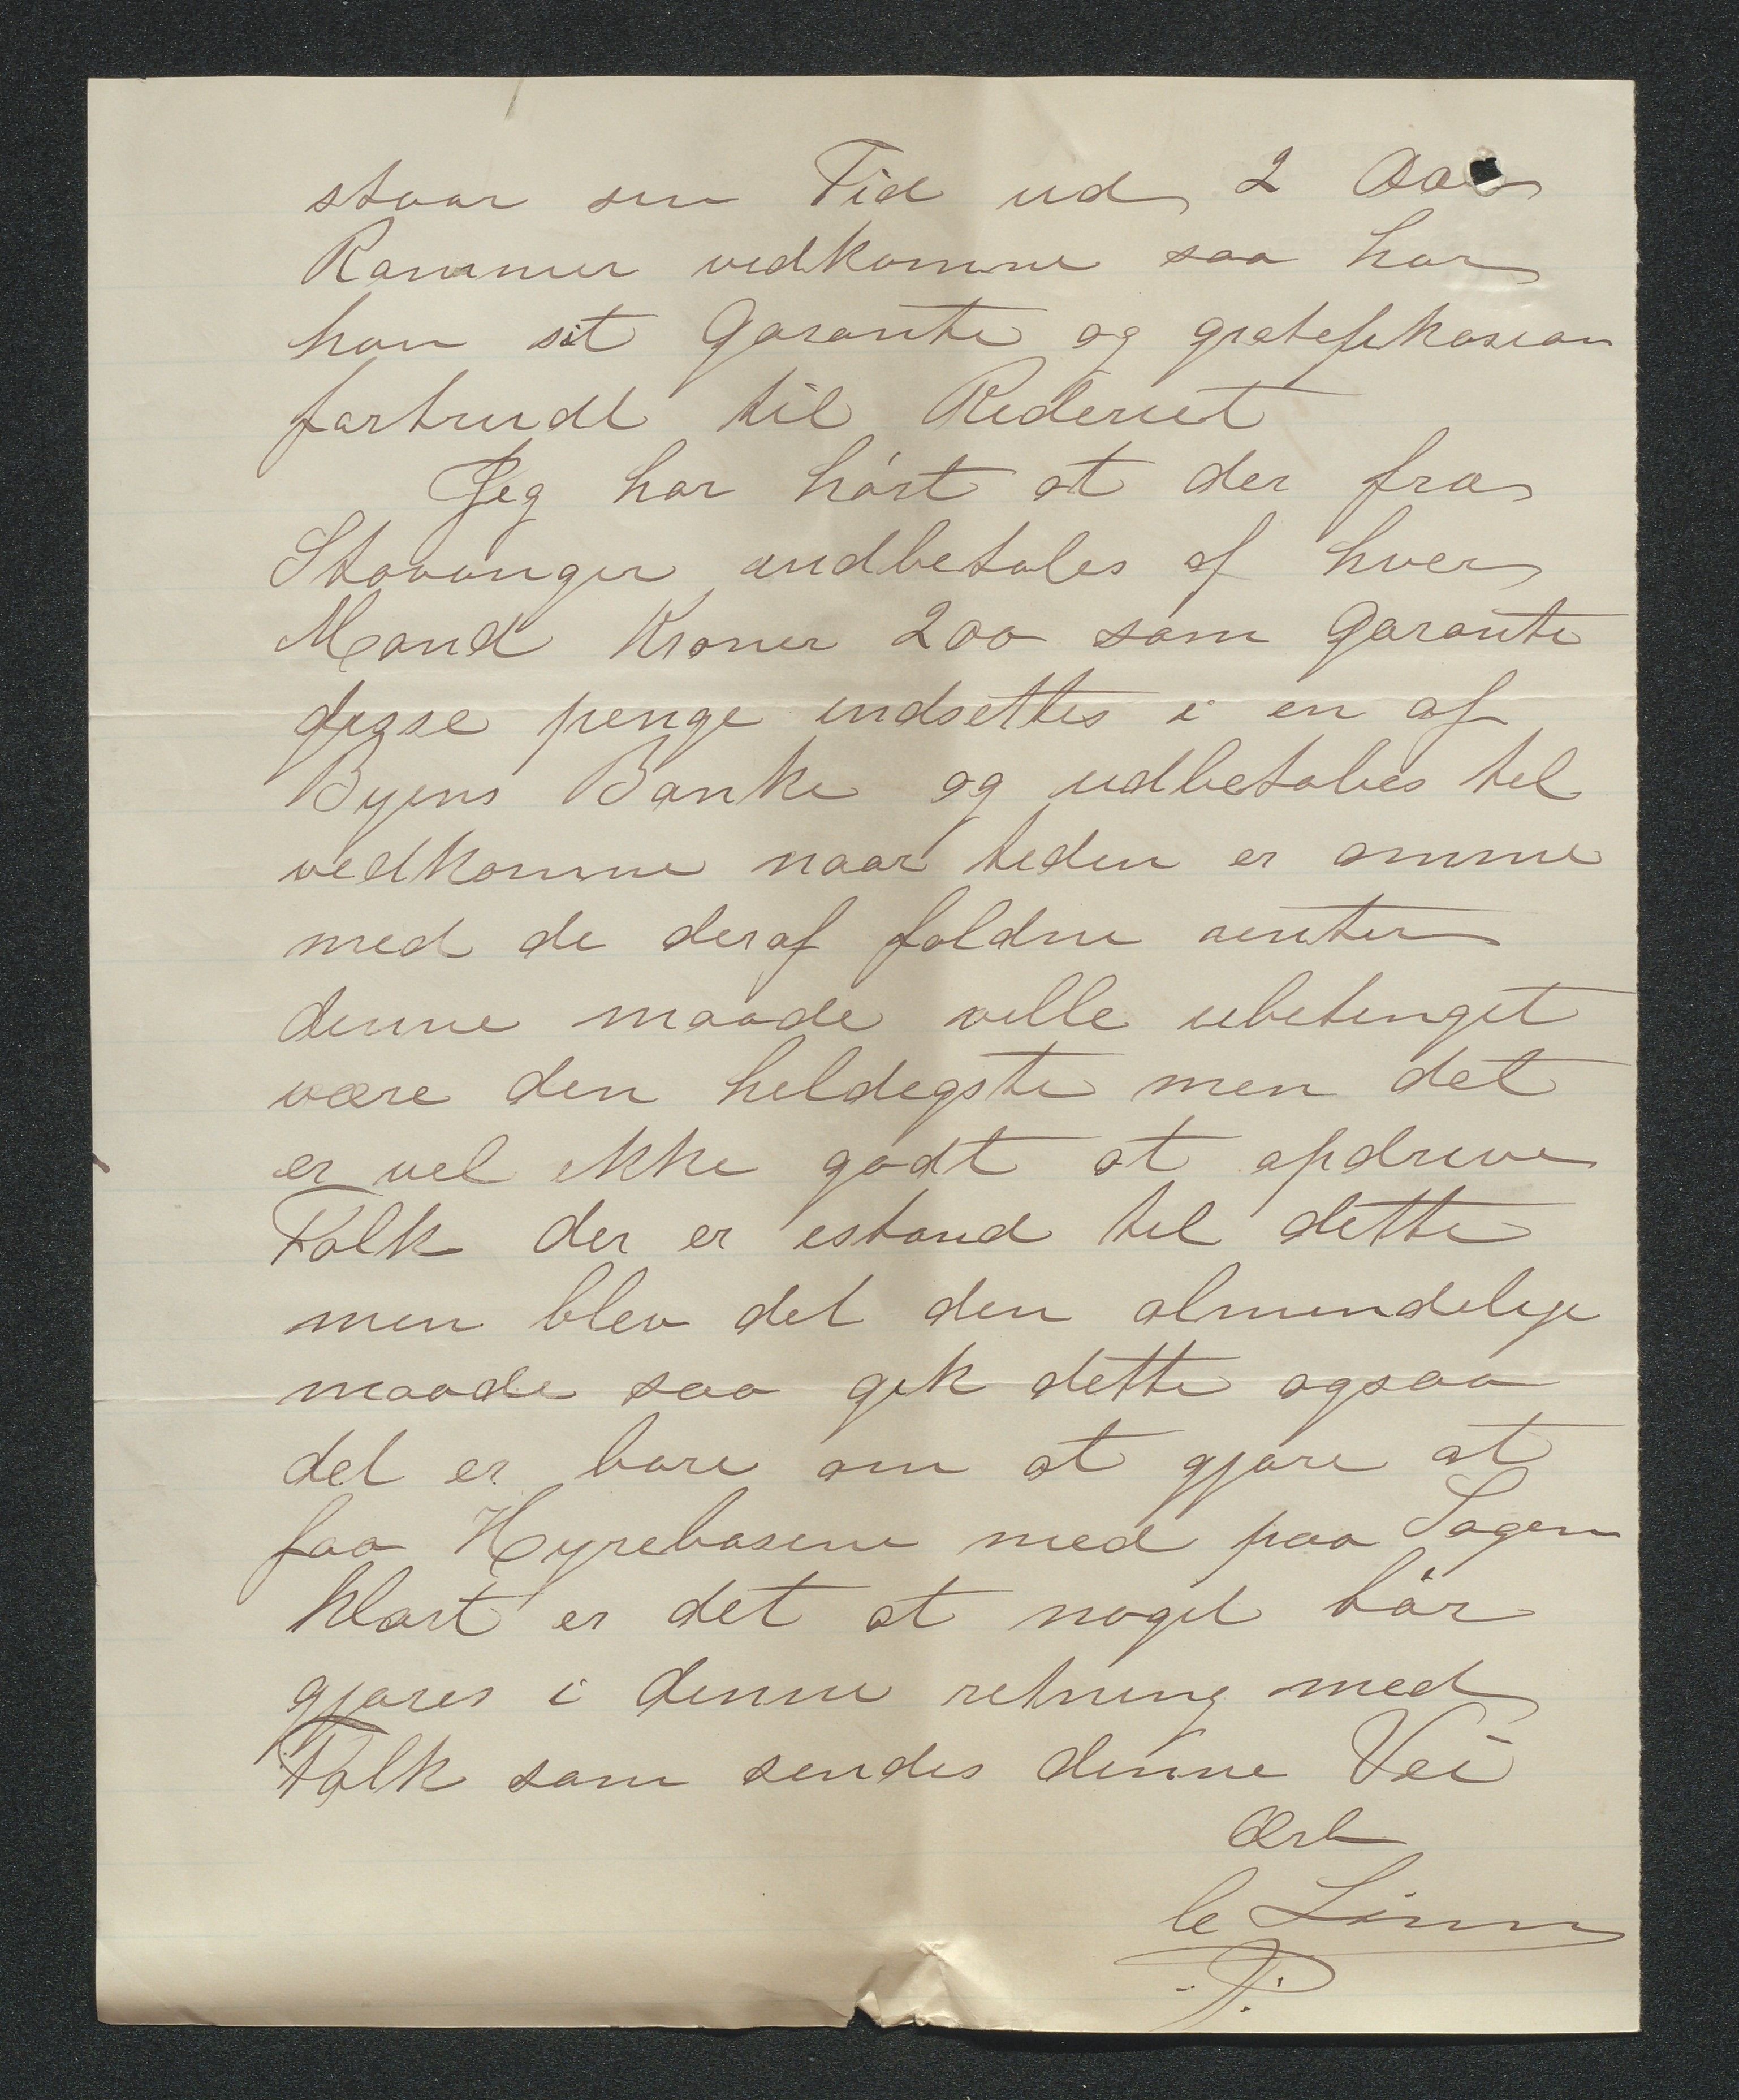 staar sin Tid ud 2 Aar
Rømmer vedkomme saa har
han sit Garanti og gratefikasion
fortrudt til Rederiet
Jeg har hørt at der fra
Stavanger indbetales af hver
Mand Kroner 200 som Garanti
disse penge indsettes i en af
Byens Banke og udbetales til
vedkomme naar tiden er omme
med de deraf faldne renter
denne maade ville ubetinget
være den heldigste men det
er vel ikke godt at opdrive
Folk der er istand til dette
men blev det den almindelige
maade saa gik dette ogsaa
det er bare om at gjøre at
faa Hyrebasene med paa Sagen
klart er det at noget bør
gjøres i denne retning med
Folk som sendes denne Vei
Ærb